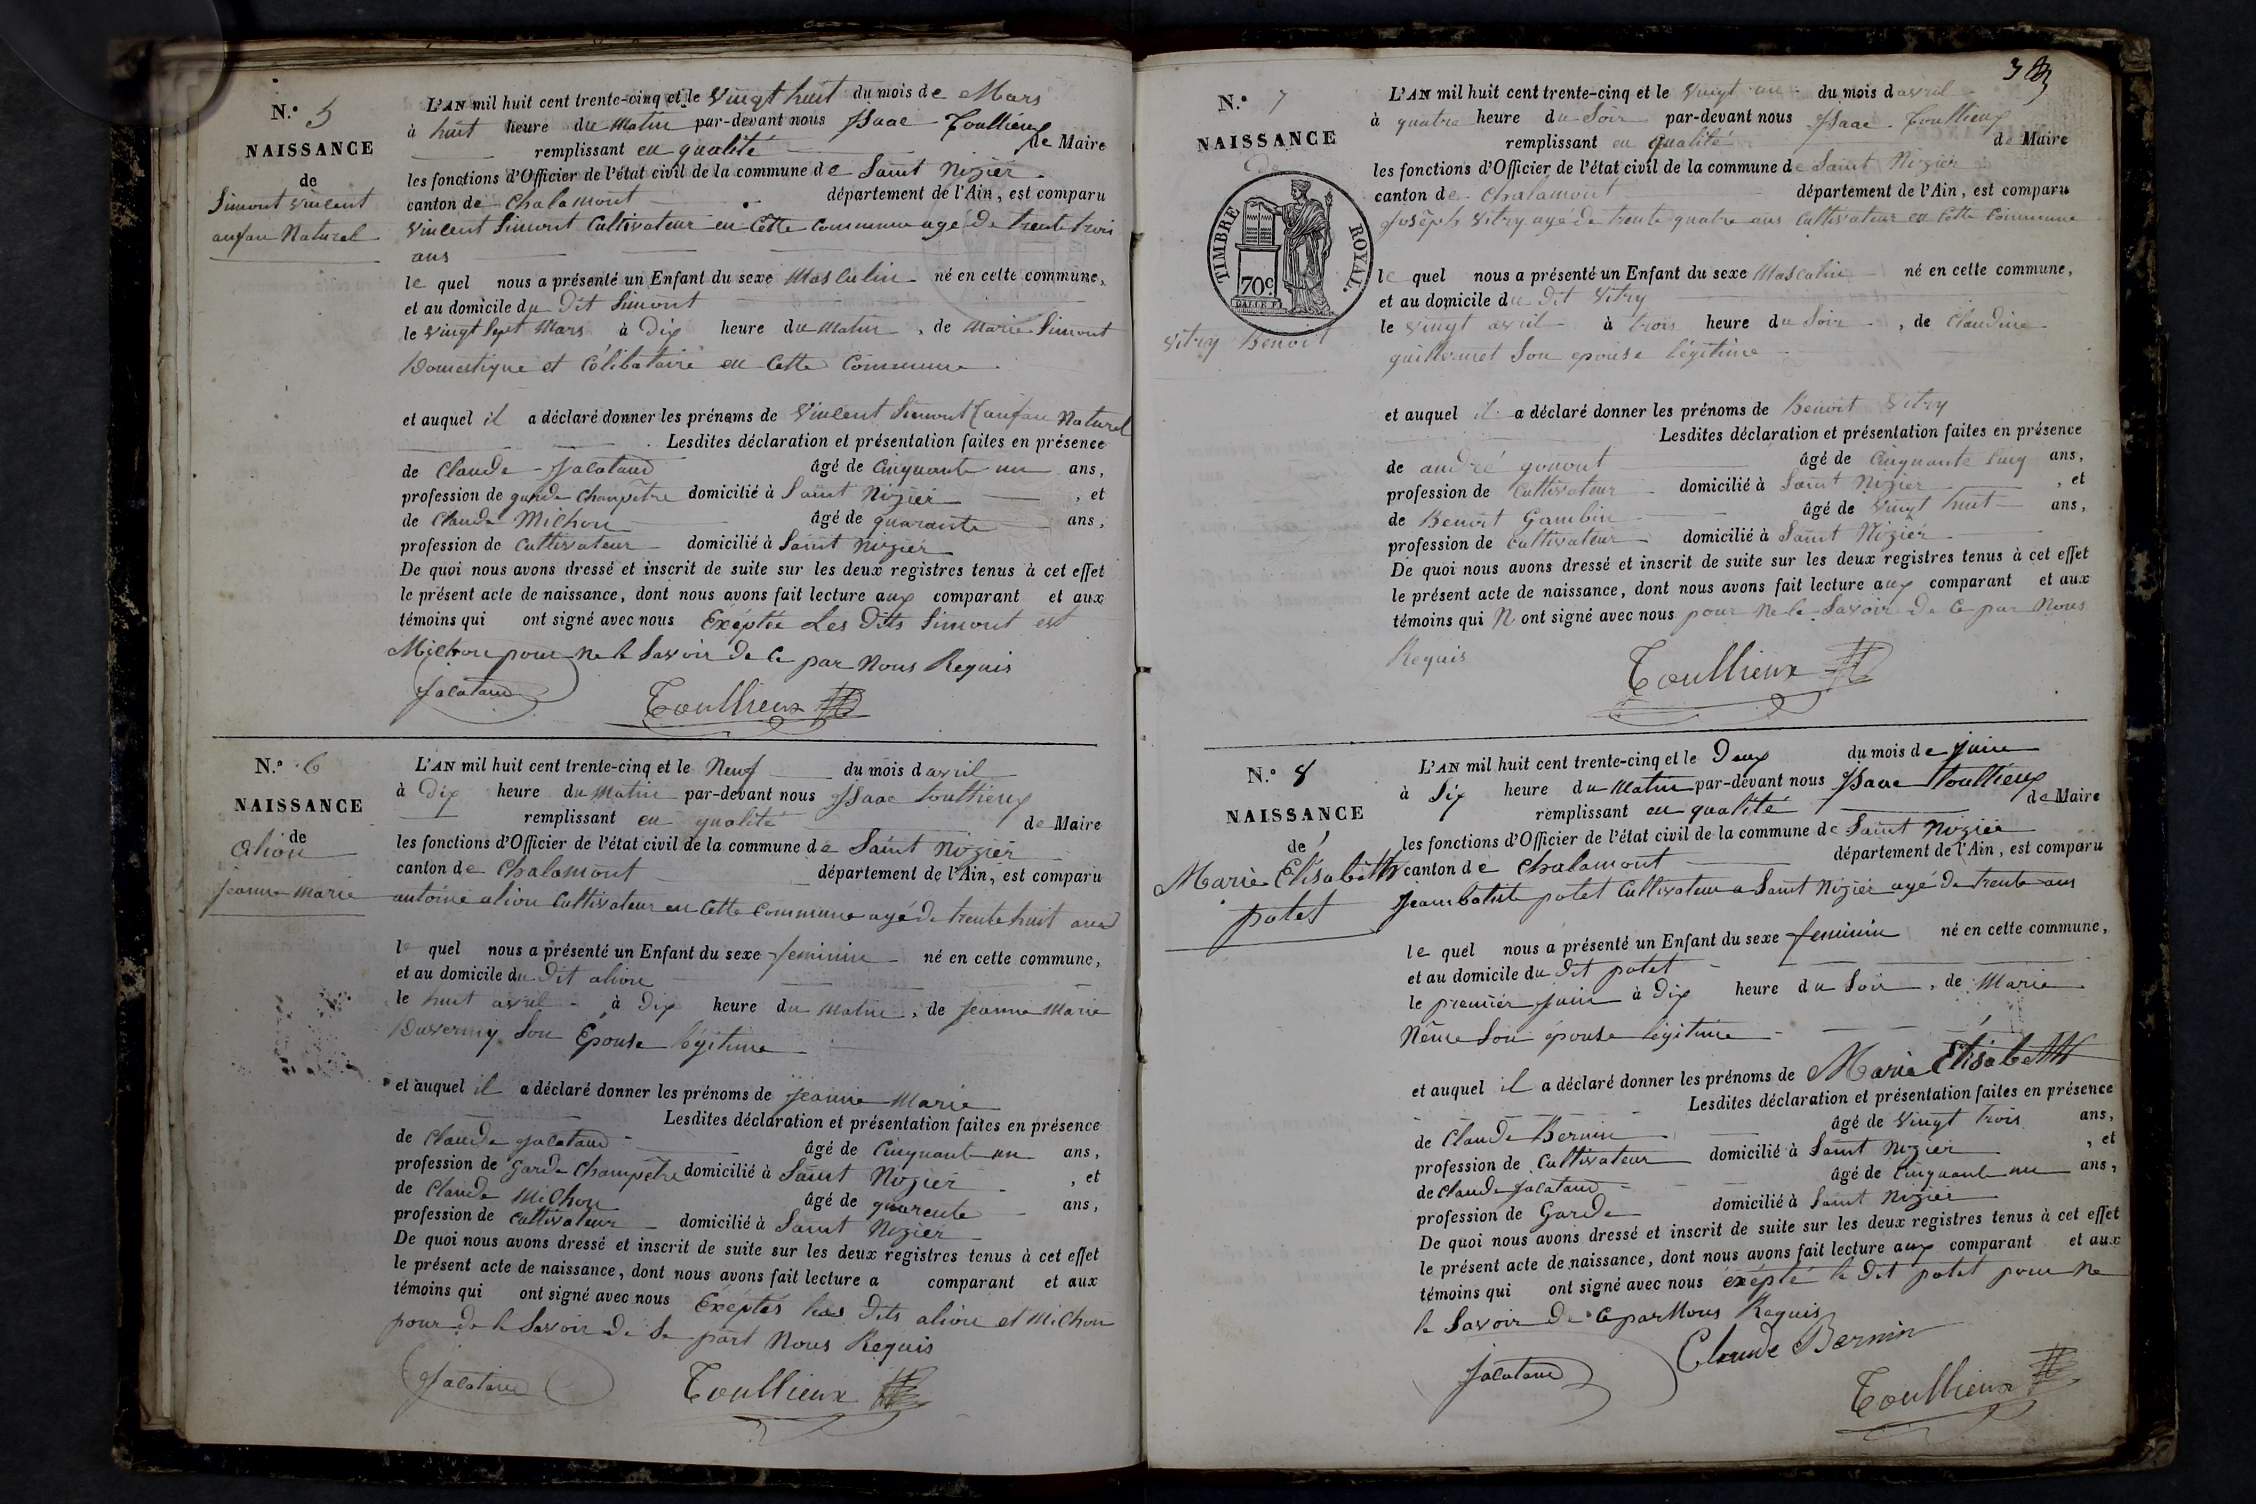 N.º 5
NAISSANCE
de
Simont Vincent
anfan Naturel
L'AN mil huit cent trente-cinq et le vingt huit du mois de Mars
à huit heure du Matin par-devant nous Isaac Toullieux
remplissant en qualité de Maire
les fonctions d'Officier de l'état civil de la commune de Saint Nizier
canton de Chalamont département de l'Ain, est comparu
Vincent Simont Cultivateur en Cette Commune agé de trente trois
ans
le quel nous a présenté un Enfant du sexe Masculin né en cette commune,
et au domicile du Dit Simont
le vingt Sept Mars à Dix heure du Matin, de Marie Simont
Domestique et Célibataire en Cette Commune
et auquel il a déclaré donner les prénoms de Vincent Simont (anfan Naturel
Lesdites déclaration et présentation faites en présence
de Claude Jacataud âgé de Cinquante un ans,
profession de garde Champêtre domicilié à Saint Nizier, et
de Claude Michon âgé de quarante ans,
profession de Cultivateur domicilié à Saint Nizier
De quoi nous avons dressé et inscrit de suite sur les deux registres tenus à cet effet
le présent acte de naissance, dont nous avons fait lecture aux comparant et aux
témoins qui ont signé avec nous Exéptée Les Dits Simont est
Michon pour Ne le Savoir de Ce par Nous Requis
Jacataud Toullieux
N.º 6
NAISSANCE
de
alion
Jeanne Marie
L'AN mil huit cent trente-cinq et le Neuf du mois d avril
à Dix heure du Matin par-devant nous Isaac Toullieux
remplissant en qualité de Maire
les fonctions d'Officier de l'état civil de la commune de Saint Nizier
canton de Chalamont département de l'Ain, est comparu
antoine alion Cultivateur en Cette Commune agé de trente huit ans
le quel nous a présenté un Enfant du sexe feminin né en cette commune,
et au domicile du Dit alion
le huit avril à Dix heure du Matin, de Jeanne Marie
Duverny Son Épouse légitime
et auquel il a déclaré donner les prénoms de Jeanne Marie
Lesdites déclaration et présentation faites en présence
de Claude Jacataud âgé de Cinquante un ans,
profession de Garde Champêtre domicilié à Saint Nizier, et
de Claude Michon âgé de quarente ans,
profession de Cultivateur domicilié à Saint Nizier
De quoi nous avons dressé et inscrit de suite sur les deux registres tenus à cet effet
le présent acte de naissance, dont nous avons fait lecture a comparant et aux
témoins qui ont signé avec nous Exéptés les Dits alion et Michon
pour de le Savoir de Se part Nous Requis
Jacataud Toullieux
3
N.º 7
NAISSANCE
de
TIMBRE ROYAL.
70c
Vitry Benoit
L'AN mil huit cent trente-cinq et le vingt un du mois d avril
à quatre heure du Soir par-devant nous Isaac Toullieux
remplissant en qualité de Maire
les fonctions d'Officier de l'état civil de la commune de Saint Nizier
canton de Chalamont département de l'Ain, est comparu
Joseph Vitry agé de trente quatre ans Cultivateur en Cette Commune
le quel nous a présenté un Enfant du sexe Masculin né en cette commune,
et au domicile du Dit Vitry
le vingt avril à trois heure du Soir, de Claudine
guillermet Son epouse légitime
et auquel il a déclaré donner les prénoms de Benoit Vitry
Lesdites déclaration et présentation faites en présence
de andré gonout âgé de Cinquante Cinq ans,
profession de Cultivateur domicilié à Saint Nizier, et
de Benoit Gambin âgé de Vingt huit ans,
profession de Cultivateur domicilié à Saint Nizier
De quoi nous avons dressé et inscrit de suite sur les deux registres tenus à cet effet
le présent acte de naissance, dont nous avons fait lecture aux comparant et aux
témoins qui N ont signé avec nous pour Ne le Savoir de Ce par Nous
Requis
Toullieux
N.º 8
NAISSANCE
de
Marie Elisabeth
potet
L'AN mil huit cent trente-cinq et le Deux du mois de Juin
à Six heure du Matin par-devant nous Isaac Toullieux
remplissant en qualité de Maire
les fonctions d'Officier de l'état civil de la commune de Saint Nizier
canton de Chalamont département de l'Ain, est comparu
Jeanbatiste potet Cultivateur a Saint Nizier agé de trente ans
le quel nous a présenté un Enfant du sexe feminin né en cette commune,
et au domicile du Dit potet
le premier Juin à Dix heure du Soir, de Marie
Son épouse légitime
et auquel il a déclaré donner les prénoms de Marie Elisabeth
Lesdites déclaration et présentation faites en présence
de Claude Bernin âgé de Vingt trois ans,
profession de Cultivateur domicilié à Saint Nizier, et
de Claude Jacataud âgé de Cinquante un ans,
profession de Garde domicilié à Saint Nizier
De quoi nous avons dressé et inscrit de suite sur les deux registres tenus à cet effet
le présent acte de naissance, dont nous avons fait lecture aux comparant et aux
témoins qui ont signé avec nous éxépté le Dit potet pour Ne
le Savoir De Ce par Nous Requis
Jacataud Claude Bernin
Toullieux